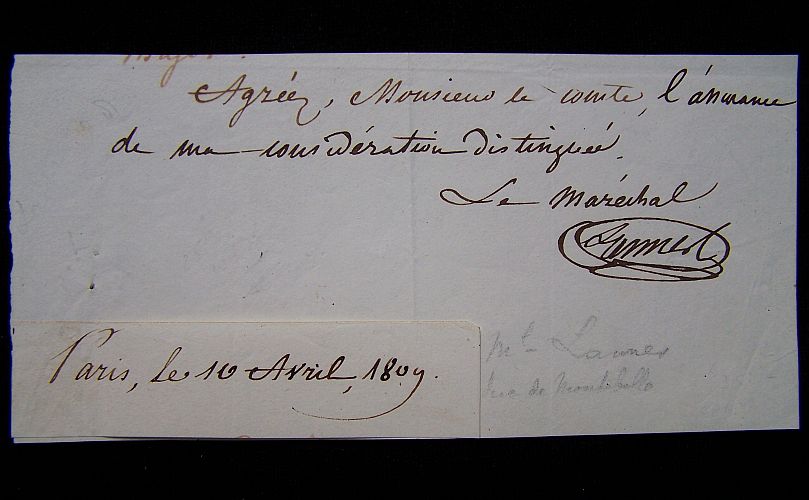 Agréez, Monsieur le comte, l'assurance
de ma considération distinguée.
Le Maréchal
Lannes
Paris, le 10 Avril, 1809.
Mal Lannes
Duc de Montebello